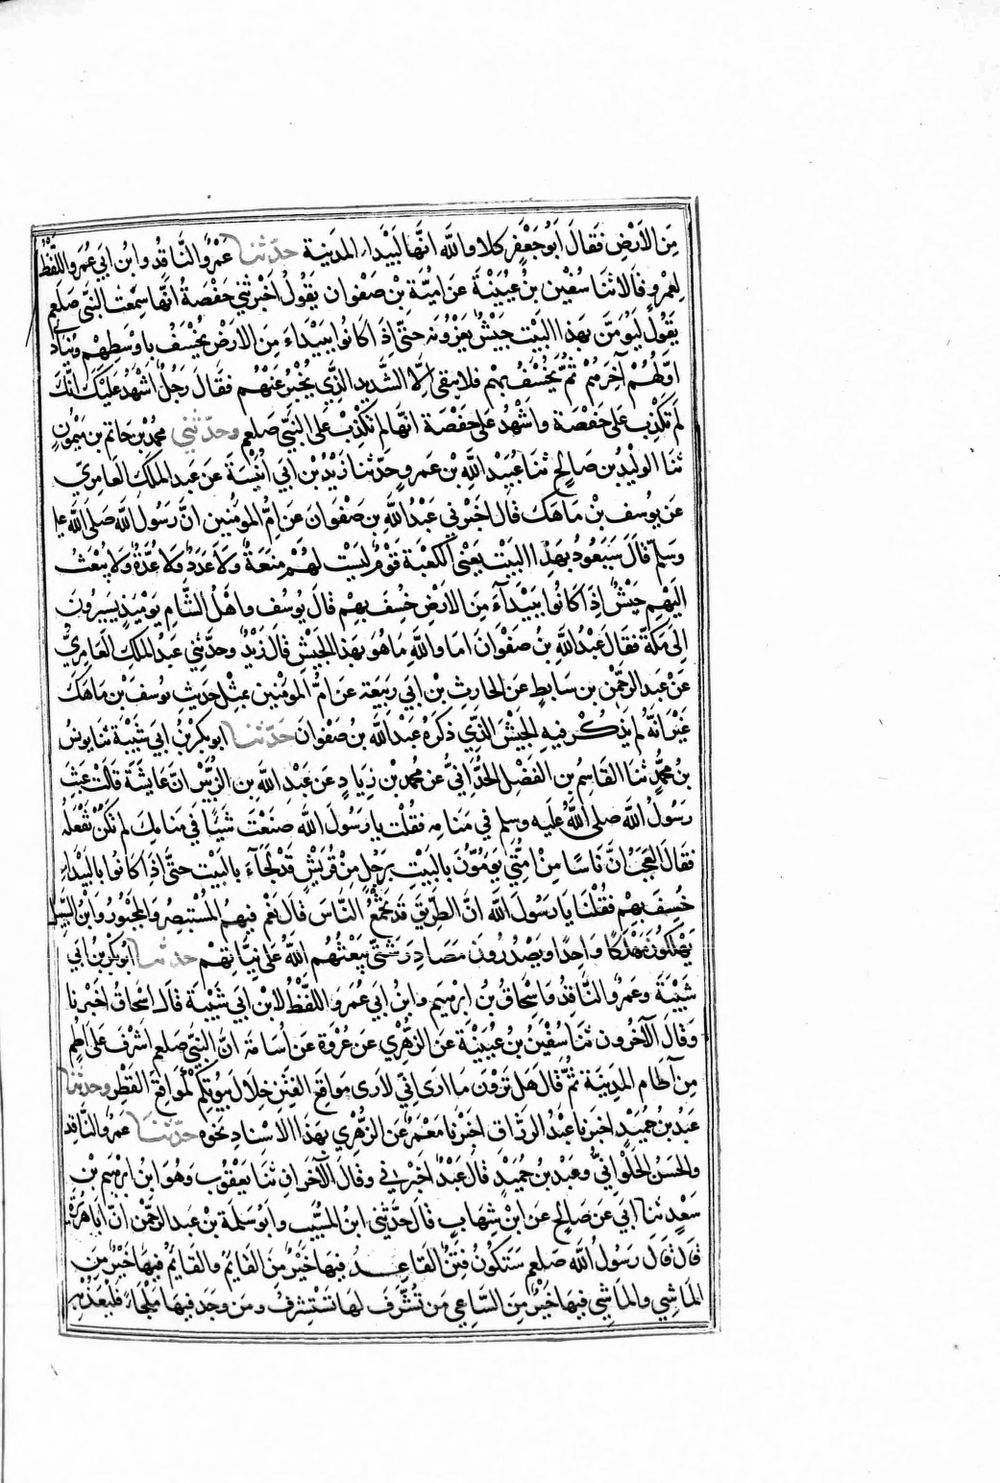 مِنَ الاَرْضِ فَقَالَ اَبُوجَعْفَرٍ كلا والله انَّهَا لَبَيْداء المدينة حدّثنا عَمْرٌو النَّاقدُ وابْنُ ابي عُمَر واللفظُ
لِعَمْرٍو قالا ثَنَا سُفْيٰن بْنُ عُيَيْنَةَ عَنْ امَيَّة بْنِ صَفْوان يَقُولُ اخْبَرَتْني حَفْصَةُ انَّهَا سَمِعْت النبيّ صَلعم
يَقُولُ لَيَؤُمَّنَّ هٰذا البَيْت جَيْشٌ يَغْزُونه حتّى اذَا كانُوا ببَيْداءَ مِنَ الارَضِ يُخْسَفُ باوْسَطِهِمْ ويُنَادي
اوّلهُمْ آخِرَهمْ ثُمَّ يُخْسَفُ بهِم فلا يبقى الا الشَّريدُ الّذِي يُخْبِرُ عَنْهُم فقَالَ رَجُلٌ اشْهَدُ عَلَيكَ انّكَ
لَمْ تَكْذِبْ على حَفصَة واشْهَدُ على حَفْصَة انَّها لم تكْذِبْ على النَّبِيّ صَلعم وحدّثني محمدُ بْن حَاتم بن ميمُونٍ
ثنا الوليدُ بن صَالِحٍ ثنا عُبَيد الله بْن عَمرٍو حدّثنا زيْدُ بْن ابي انيْسَةَ عَن عَبد الملك العَامِريّ
عَن يُوسف بْن مَاهَك قال اخبَرني عَبْدُ الله بن صَفْوانَ عَن امّ المؤمنين انّ رَسُولَ الله صَلى الله عليه
وسَلم قالَ سَيَعُوذ بهَذَا البَيْت يعني الكعْبَة قَوْمٌ ليسَتْ لهُمْ منَعَةٌ ولا عَدَدٌ ولا عُدّةٌ ولا يُبْعَثُ
اليْهِم جيْشٌ اذا كانُوا ببَيْدَآءَ مِنَ الارَضِ خُسِفَ بهِم قالَ يُوسُف واهْلُ الشَّام يَوْمَئِذٍ يَسِيرُونَ
إلى مَكّة فقالَ عَبْدُ اللهِ بنُ صَفْوَانَ امَا واللّهِ ما هُوَ بهَذا الجَيْش قَالَ زَيْدٌ وحدّثني عَبدُ الملك العَامِريُّ
عَنْ عَبد الرّحمٰن بن سَابطٍ عَن الحَارث بْن ابي رَبيعَة عَن امّ المؤمنين بمِثْل حَديث يُوسف بْن مَاهَكَ
غيْرَ انّهُ لم يَذكُرْ فيهِ الجَيْشَ الذِّي ذكرَهُ عَبْدُ الله بْن صَفْوان حَدّثَنا ابوبَكر بْنُ ابي شَيْبَة ثنا يونسُ
بْنُ محَمّدٍ ثنا القَاسِمُ بن الفَضْل الحُدَّانيُّ عَن محَمد بْن زِيادٍ عَن عَبْد الله بن الزبيْر انّ عَايشَة قَالَتْ عَبَثَ
رَسُولُ الله صَلى الله عَليه وسلم في مَنامِه فقُلْتُ يا رَسُولَ الله صَنَعْتَ شَيْئًا في مَنامك لم تَكُنْ تَفْعَلُهُ
فقَالَ العَجَبُ انَّ نَاسًا مِنْ امّتي يَؤمّونَ بالبَيْتِ برَجُلٍ مِنْ قُرَيشٍ قَدْ لجَاءَ بالبَيْت حتَّى اذا كانُوا بالبَيْدَاءِ
خُسِفَ بهِمْ فقُلْنَا يا رَسُولَ الله انّ الطَّريقَ قد تَجْمَعُ النّاسَ قالَ نعَم فيهِمُ المُسْتَبصِرُ والمجْبُورُ وابْنُ السَّبيل
يَهْلكُونَ مَهْلَكًا وَاحِدًا ويَصْدُرُونَ مَصَادِرَ شَتّى يَبْعَثُهُم اللّهُ عَلى نيّاتهِمْ حدثنا ابُوبَكْر بْنُ ابي
شَيْبَةَ وعَمرٌو النَّاقِدُ واسْحَاقُ بْنُ ابرهيمَ وابْنُ ابي عُمَر واللفْظُ لابْن ابي شَيْبَة قالَ اسْحاقُ اخْبَرنا
وقَالَ الآخَرُونَ ثَنَا سُفيٰن بْنُ عُيَيْنَة عَن الزهْري عَن عُرْوةَ عَن اسَامَةَ انّ النبيَّ صَلعم اشْرَف على اطُمٍ
مِن آطَام المدِيْنَة ثُمَّ قالَ هَل تَرَوْنَ ما ارَى انّي لارَى مَواقعَ الفِتَن خِلالَ بيُوتِكُمْ كمَواقِع القَطْر وحدثنا
عَبْدُ بْنُ حُمَيْدٍ اخبرنا عَبْدُ الرزّاق اخبَرْنا مَعْمَرٌ عَن الزُّهْري بهَذَا الاسْنادِ نحوه حدّثنَا عَمرٌو النَّاقِد
والحَسَنُ الحُلْوانيُّ وعَبد بْن حُمَيْدٍ قالَ عَبْدٌ اخبَرَني وقالَ الآخَرانِ ثنا يعَقُوب وَهُوَ ابْنُ ابرهيم بن
سَعْدٍ ثنا ابي عَن صَالحٍ عَن ابْن شِهَابٍ قالَ حدّثني ابنُ المسَيَّب وابُوسَلمة بْن عَبد الرحمٰن انّ ابا هُرَيرة
قالَ قالَ رَسُولُ الله صَلعم سَتَكُونُ فِتَنٌ القَاعِدُ فيهَا خَيْرٌ مِنَ القَايمِ والقَايمُ فيهَا خَيْرٌ مِنَ
المَاشِي والمَاشِي فيهَا خَيْرٌ مِنَ السَّاعِي مَن تَشرَّفَ لهَا تَسْتَشرِفُه ومَن وجَد فيها مَلْجأ فليَعُذْ بِه